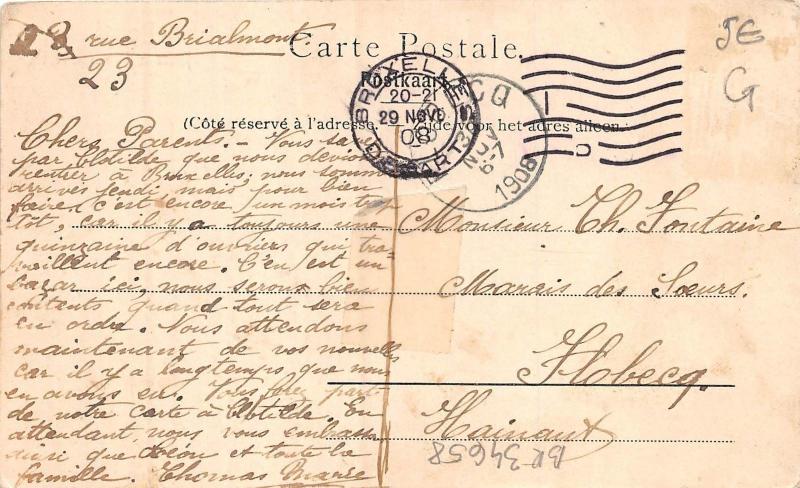 23, rue Brialmont
23
Carte Postale.
Postkaart
(Côté réservé à l'adresse. Zijde voor het adres alleen.
BRUXELLES
20-21
29 NOV
08
DEPART
CQ
NOV
1908
JE
G
Chers Parents. - Vous
par Clotilde que nous devions
rentrer à Bruxelles; nous sommes
arrivés jeudi, mais pour bien
faire, c'est encore un mois trop
tôt, car il y a toujours une
quinzaine d'ouvriers qui tra-
vaillent encore. C'en est un
bazar ici, nous serons bien
contents quand tout sera
en ordre. Nous attendons
maintenant de vos nouvelles
car il y a longtemps que nous
en avons eu. Vous ferez part
de notre carte à Clotilde. En
attendant, nous vous embrassons
ainsi que Léon et toute la
famille. Thomas Marie
Monsieur Th. Fontaine
Marais des Soeurs.
Flobecq.
Hainaut
34658